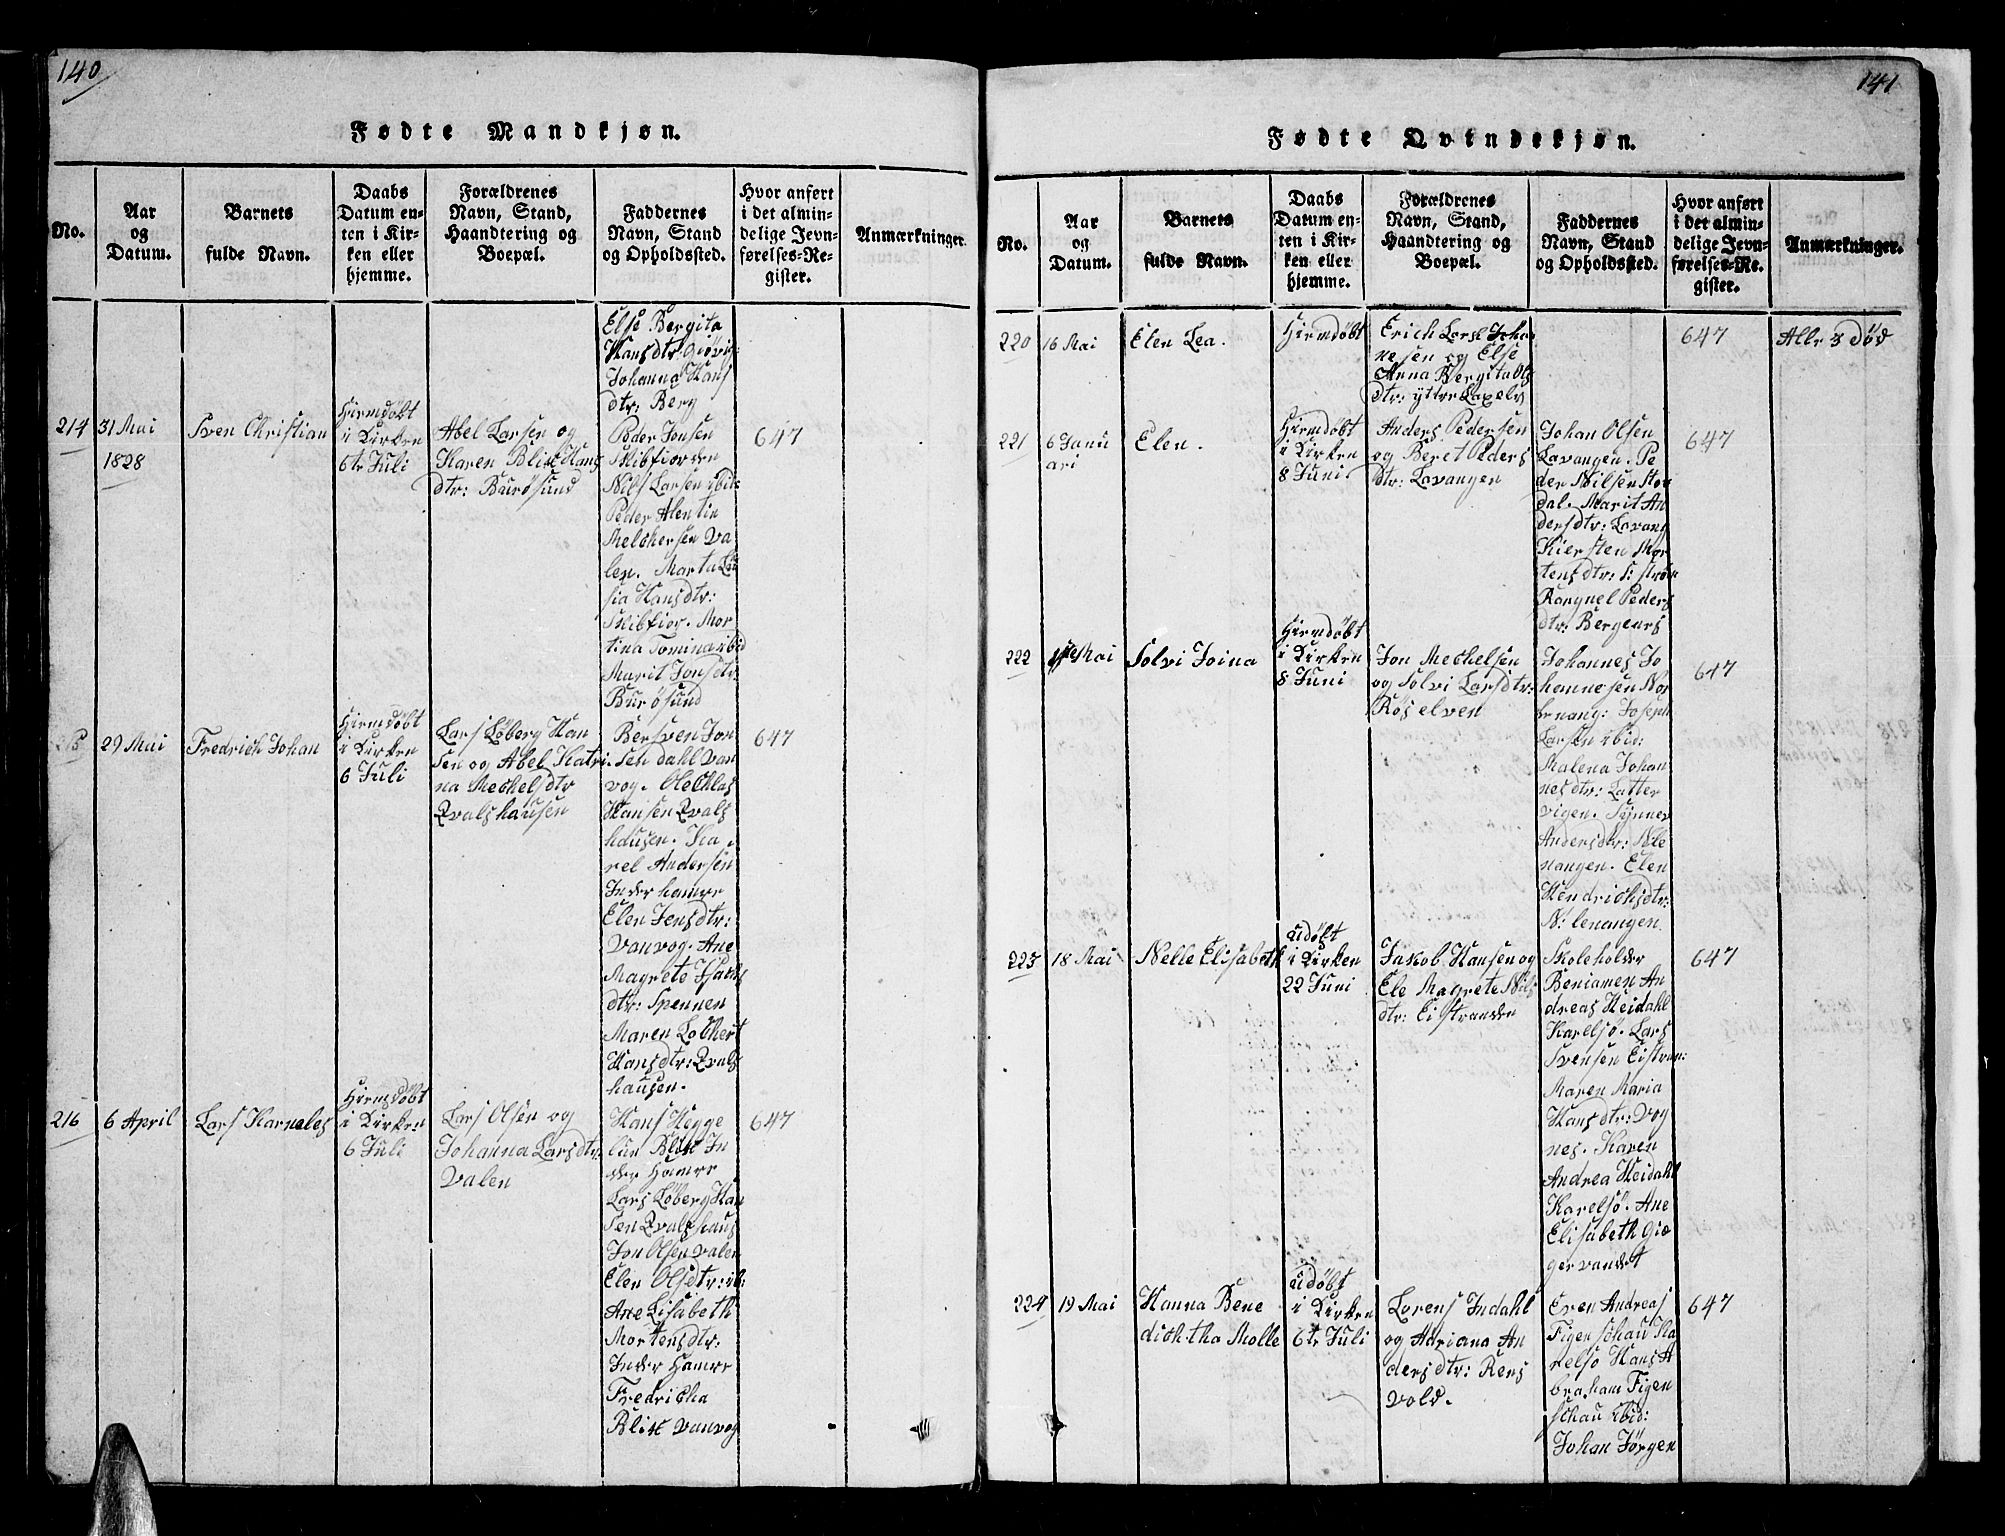 140
Fødte Mandkjøn.
No.
Aar
og
Datum.
Barnets
fulde Navn.
Daabs
Datum en-
ten i Kir-
ken eller
hjemme.
Forældrenes
Navn, Stand,
Haandtering og
Boepæl.
Faddernes
Navn, Stand
og Opholdssted.
Hvor anført
i det almin-
delige Jevn-
førelses-Re-
gister.
Anmærkninger.
Else Bergita
Hansdtr: Giøvig
Johanna Hans
dtr: Berg
214
31 Mai
1828
Sven Christian
Hiemdøbt
i Kirken
6te Juli
Abel Larsen og
Karen Blix Hans
dtr: Burøsund
Peder Jonsen
Skibfiorden
Nils Larsen ibid:
Peder Alentin
Melchersen Va
len. Marta Lo
sia Hansdtr:
Skibfior. Mor
tina Tomina ibid
Marit Jonsdtr:
Burøsund
647
215
29 Mai
Fredrich Johan
Hiemdøbt
i Kirken
6 Juli
Lars Løberg Han
sen og Abel Katri
na Mechelsdtr
Qvalshausen
Bersven Jon
sen dahl Van
vog. Ole Clas
Hansen Qvals
hausen. Ka
rel Andersen
Inderhamre
Elen Jensdtr:
Vanvog. Ane
Magrete Isachs
dtr: Spennen
Maren Lothert
Hansdtr: Qvals
hausen.
647
216
6 April
Lars Karneles
Hiemsdøbt
i Kirken
6 Juli
Lars Olsen og
Johanna Larsdtr:
Valen
Hans Hegge
lun Blix In
der Hamre
Lars Løberg Han
sen Qvalshaus
Jon Olsen Valen
Elen Olsdtr: ib:
Ane Lisabeth
Mortensdtr:
Inder Hamre
Fredricha
Blix Vanvog
647
141
Fødte Qvindekjøn.
No.
Aar
og
Datum.
Barnets
fulde Navn.
Daabs
Datum en-
ten i Kir-
ken eller
hjemme.
Forældrenes
Navn, Stand,
Haandtering og
Boepæl.
Faddernes
Navn, Stand
og Opholdssted.
Hvor anført
i det almin-
delige Jevn-
førelses-Re-
gister.
Anmærkninger.
220
16 Mai
Elen Lea.
Hiemdøbt
Erich Lars Joha
nesen og Else
Anna Bergita Ols
dtr: yttre Laxelv
647
Alle 3 død
221
6 Janu
ari
Elen.
Hiemdøbt
i Kirken
8 Juni
Anders Pedersen
og Beret Peders
dtr: Lavangen
Johan Olsen
Lavangen. Pe
der Nilsen Stor
dal. Marit An
dersdtr: Lavang
Kiersten Mor
tensdtr: S: strøm
Rangnel Peders
dtr: Bergeners
647
222
Mai
Solvi Joina
Hiemdøbt
i Kirken
8 Juni
Jon Mechelsen
og Solvi Larsdtr:
Røselven
Johannes Jo
hannesen Nor
lenang: Joseph
Larsen ibid:
Malena Johan
nesdtr: Latter
vigen. Synnev
Andersdtr: N: le
nangen. Elen
Hendrichsdtr:
N: lenangen
647
223
18 Mai
Nelle Elisabeth
udøbt
i Kirken
22 Juni
Jakob Hansen og
Ele Magrete Nils
dtr: Eistranden
Skoleholder
Beniamen An
dreas Heidahl
Karelsø. Lars
Svensen Eistran:
Maren Maria
Hansdtr: Vog
nes. Karen
Andrea Heidahl
Karelsø. Ane
Elisabeth Giæ
gervandet
647
224
19 Mai
Hanna Bene
dichtha Molle
udøbt
i Kirken
6te Juli
Lorens Indahl
og Adriana An
dersdtr: Rens
vold.
Even Andreas
Figenschau Ka
relsø Hans A
braham Figen
schau ibid:
Johan Jørgen
647